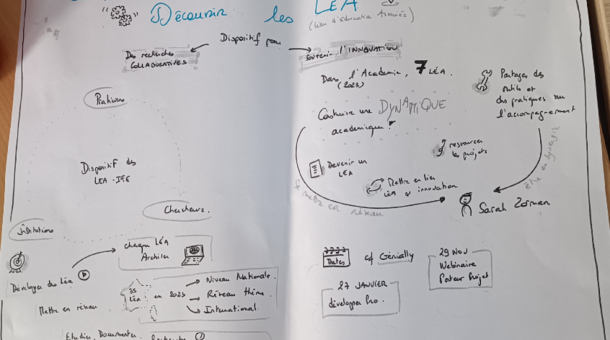 Découvrir les LÉA
(Lieu d'éducation Associés)
Dispositif pour
Des recherches
COLLABORATIVES
soutenir l'INNOVATION
Dans l'Académie, 7 LÉA.
(2023)
Partager des
outils et
des pratiques sur
l'accompagnement
Construire une DYNAMIQUE
académique
Praticiens
Dispositif des
LEA-IFE
ressources
les projets
Devenir un
LÉA
Mettre en lien
LÉA et innovation
Se mettre en réseau
Sarah
Chercheurs.
Institutions
chaque LÉA
Développer du Léa
Mettre en réseau
35
Léa
en 2023
Niveau Nationale.
Réseau thém.
International.
Dates
cf Genially
29 Nov
Webinaire
Porteur Projet
27 JANVIER
développer
Etudier, Documenter,